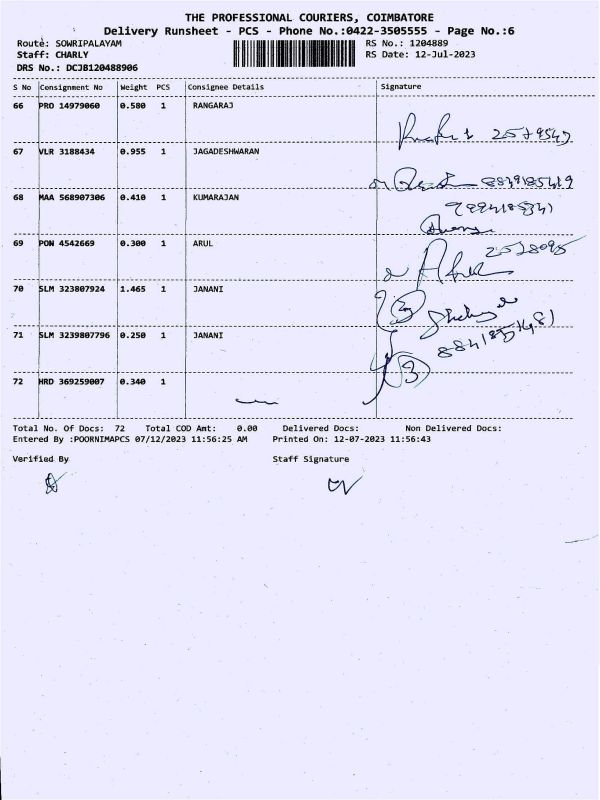 THE PROFESSIONAL COURIERS, COIMBATORE
Delivery Runsheet - PCS - Phone No.:0422-3505555 - Page No.:6
Route: SOWRIPALAYAM RS No.: 1204889
Staff: CHARLY RS Date: 12-Jul-2023
DRS No.: DCJB120488906
S No Consignment No Weight PCS Consignee Details Signature
66 PRO 14979060 0.580 1 RANGARAJ
67 VLR 3188434 0.955 1 JAGADESHWARAN
68 MAA 568907306 0.410 1 KUMARAJAN
69 PON 4542669 0.300 1 ARUL
70 SLM 323807924 1.465 1 JANANI
71 SLM 3239807796 0.250 1 JANANI
72 HRD 369259007 0.340 1
Total No. Of Docs: 72 Total COD Amt: 0.00 Delivered Docs: Non Delivered Docs:
Entered By :POORNIMAPCS 07/12/2023 11:56:25 AM Printed On: 12-07-2023 11:56:43
Verified By Staff Signature